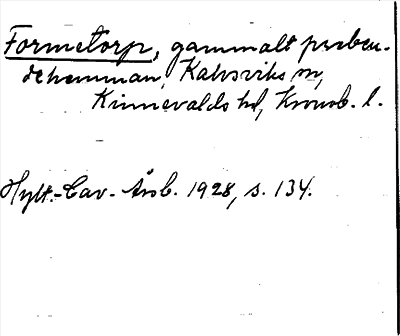 Formetorp, gammalt preben-
dehemman, Kalvsviks sn,
Kinnevalds hd, Kronob. l.
Hylt.-Cav. Årsb. 1928, s. 134.